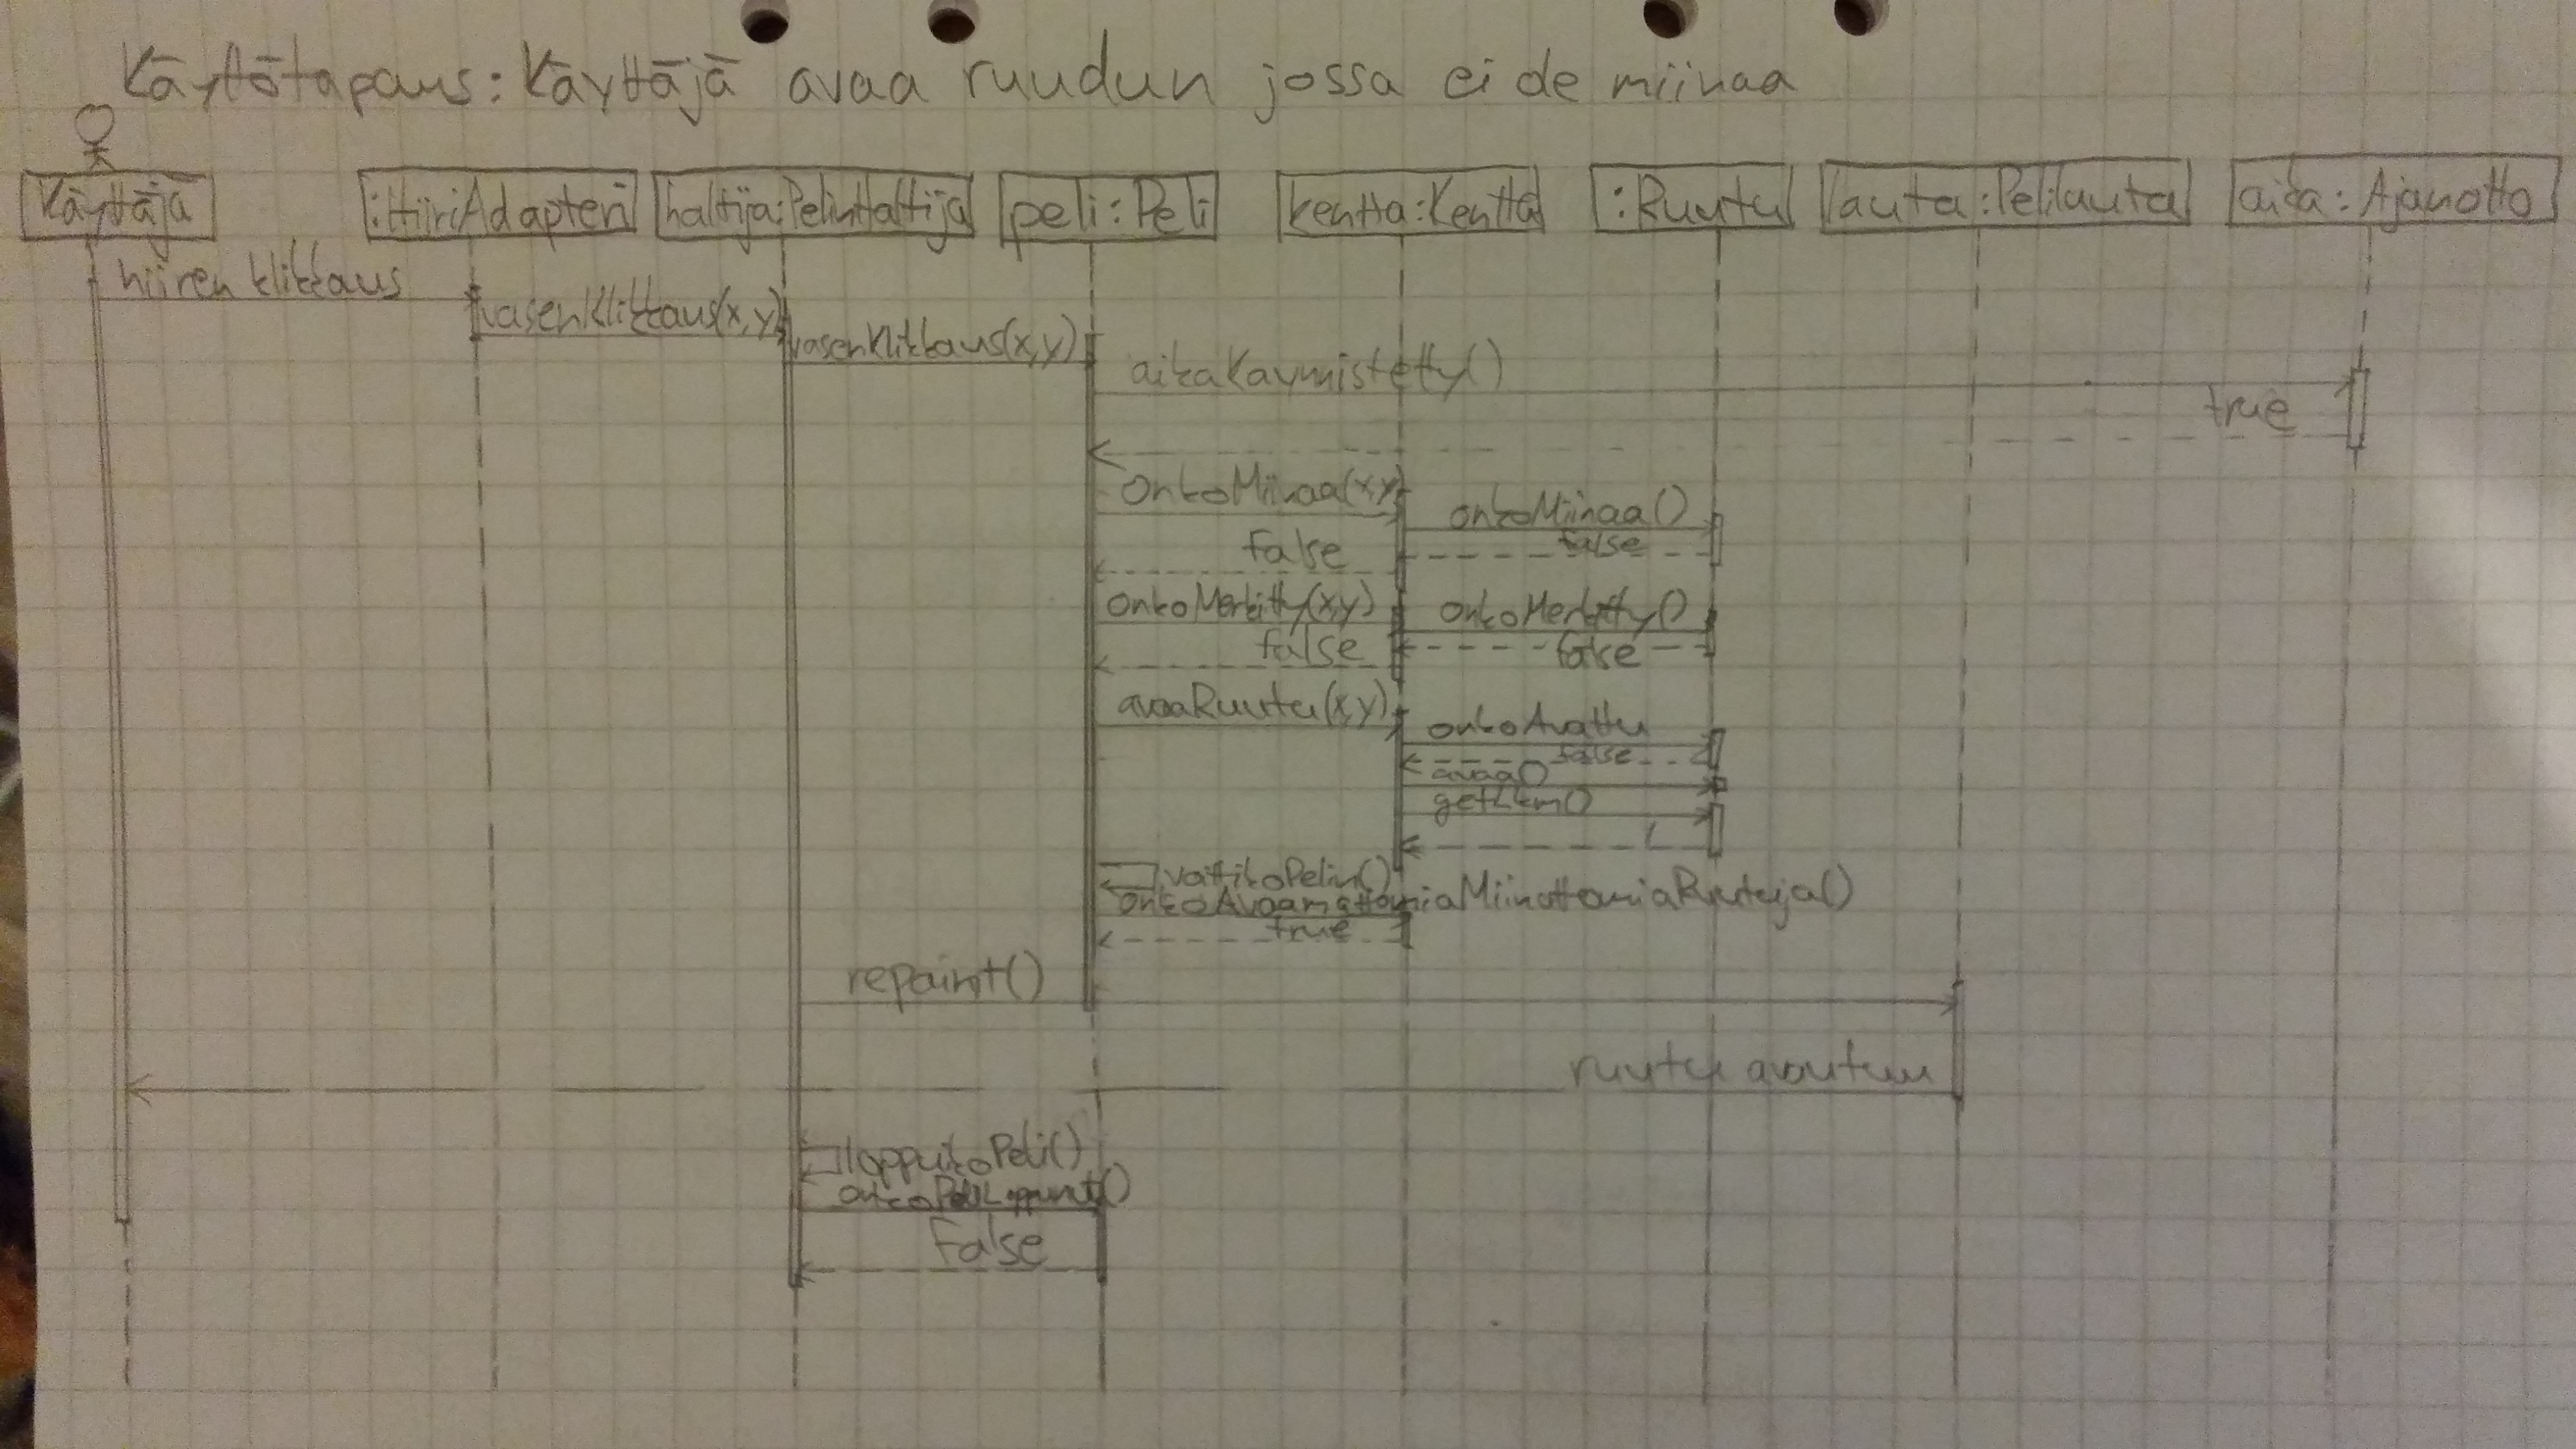 Käyttötapaus: Käyttäjä avaa ruudun jossa ei ole miinaa
Käyttäjä :HiiriAdapteri haltija:PelinHaltija peli:Peli kentta:Kentta :Ruutu lauta:Pelilauta aika:Ajanotto
hiiren klikkaus
vasenKlikkaus(x,y)
vasenKlikkaus(x,y)
aikaKaynnistetty()
true
onkoMiinaa(x,y)
onkoMiinaa()
false
false
onkoMerkitty(x,y)
onkoMerkitty()
false
false
avaaRuutu(x,y)
onkoAvattu
false
avaa()
getLkm()
1
voittikoPelin()
onkoAvaamattomiaMiinattomiaRuutuja()
true
repaint()
ruutu avautuu
loppuikoPeli()
onkoPeliLoppunut()
false